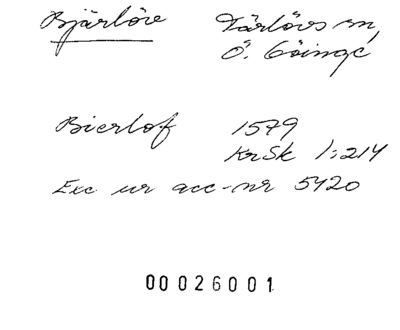 Bjärlöve Färlövs sn,
Ö. Göinge
Bierlof 1579
KrSk 1:214
Exc ur acc-nr 5420
00026001